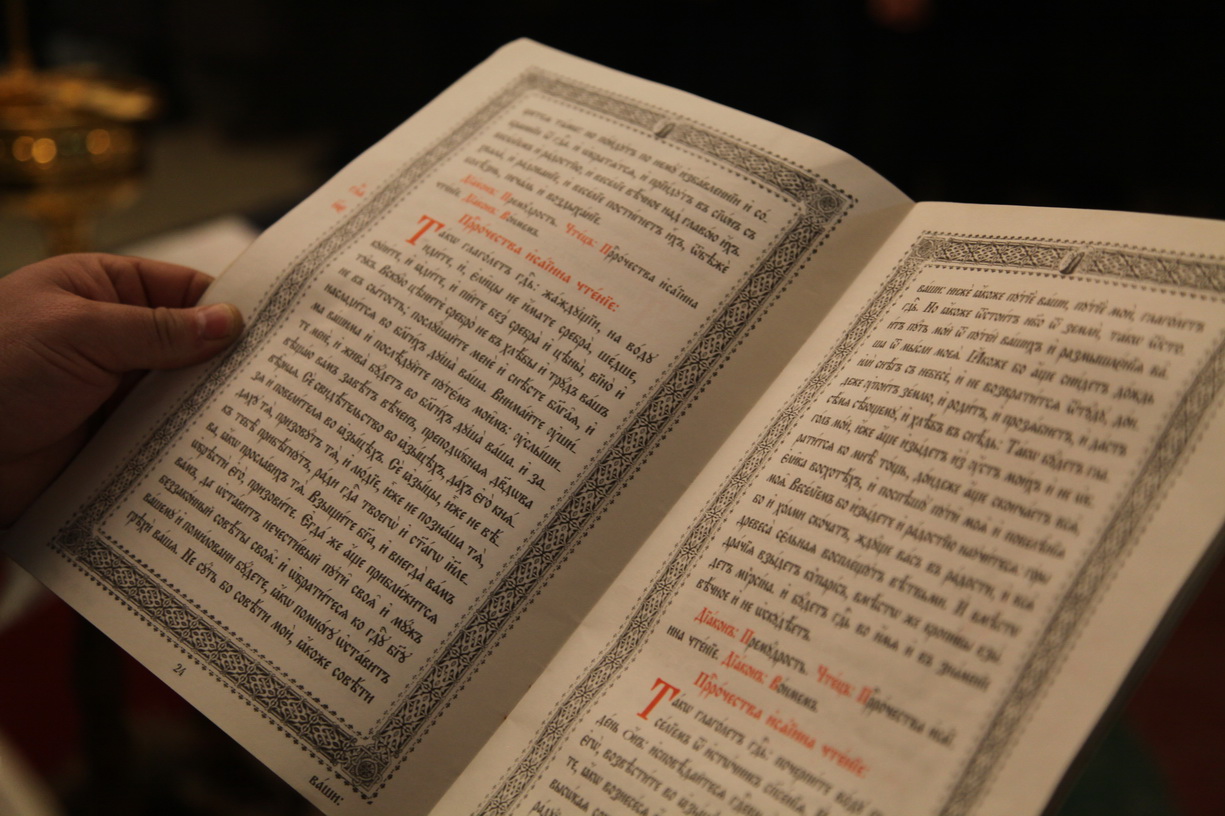 тѣмъ поидꙋтъ по немꙋ̀ и҆зба́вленнїи и҆ со́-
бра́ннїи ѿ гдⷭ҇а, и҆ ѡ҆братѧ́тсѧ, и҆ прїи́дꙋтъ въ сїѡ́нъ съ
весе́лїемъ и҆ ра́достїю, и҆ весе́лїе вѣ́чное над̾ главо́ю и҆́хъ,
и҆ ра́дованїе, и҆ весе́лїе пости́гнетъ ѧ҆̀, ѿбѣже́
болѣ́знь, печа́ль и҆ воздыха́нїе.
Дїа́конъ: Премꙋ́дрость. Чте́цъ: Прⷪ҇ро́чества и҆са́їина
чте́нїе. Дїа́конъ: Во́нмемъ.
Прⷪ҇ро́чества и҆са́їина чте́нїе:
Та́кѡ глаго́летъ гдⷭ҇ь: жа́ждꙋщїи, на во́дꙋ
и҆ди́те, и҆, є҆ли́цы не и҆́мате сребра̀, ше́дше,
кꙋпи́те, и҆ ꙗ҆ди́те, и҆ пі́йте без̾ сребра̀ и҆ цѣны̀, вїно̀ и҆
тꙋ́къ. Вскꙋ́ю цѣните сребро̀ не въ хлѣ́бы и҆ трꙋ́дъ ва́шъ
не въ сы́тость, послꙋ́шайте менѐ и҆ снѣ́сте бл҃га̑ѧ, и҆
наслади́тсѧ во бл҃ги́хъ дꙋша̀ ва́ша. Внима́йте ᲂу҆ши́-
ма ва́шима и҆ послѣ́дꙋйте пꙋтє́мъ мои̑мъ: ᲂу҆слы́ши-
те менѐ, и҆ жива̀ бꙋ́детъ во бл҃ги́хъ дꙋша̀ ва́ша. и҆ за-
вѣща́ю ва́мъ завѣ́тъ вѣ́ченъ, преподѡ́бнаѧ дв҃дѡва
вѣ̑рнаѧ. Сѐ свидѣ́тельство во ꙗ҆зы́цѣхъ да́хъ є҆го̀, кнѧ́-
зѧ и҆ повели́телѧ во ꙗ҆зы́цѣхъ. Сѐ ꙗ҆зы́цы, и҆̀же не вѣ́-
дѧхꙋ тѧ̀, призовꙋ́тъ тѧ̀, и҆ лю́дїе, и҆̀же не позна́ша тѧ̀,
къ тебѣ̀ прибѣ́гнꙋтъ, ра́ди гдⷭ҇а твоегѡ̀ и҆ ст҃а́гѡ і҆и҃ле-
ва, ꙗ҆́кѡ просла́ви тѧ̀. Взыщи́те бг҃а, и҆ внегда̀ ва́мъ
ѡ҆брѣстѝ є҆го̀, призови́те. Є҆гда́ же а҆́ще прибли́житсѧ
ва́мъ, да ѡ҆ста́витъ нечести́вый пꙋти̑ своѧ̑ и҆ мꙋ́жъ
беззако́нный совѣ́ты своѧ̑: и҆ ѡ҆брати́тесѧ ко гдⷭ҇ꙋ бг҃ꙋ
ва́шемꙋ и҆ поми́ловани бꙋ́дете, ꙗ҆́кѡ помно́гꙋ ѡ҆ста́витъ
грѣхѝ ва́ша. Не сꙋ́ть бо совѣ́ти моѝ, ꙗ҆́коже совѣ́ти
24
ва́ши:
ва́ши: нижѐ ꙗ҆́коже пꙋтїѐ ва́ши, пꙋтїѐ моѝ, глаго́летъ
гдⷭ҇ь. Но ꙗ҆́коже ѿстои́тъ нб҃о ѿ землѝ, та́кѡ ѿсто-
и́тъ пꙋ́ть мо́й ѿ пꙋті́й ва́шихъ и҆ размышлє́нїѧ ва̑-
ша ѿ мы́сли моеѧ̀. Ꙗ҆́коже бо а҆́ще сни́детъ до́ждь
и҆лѝ снѣ́гъ съ небесѐ, и҆ не возврати́тсѧ ѿтꙋ́дꙋ, до́н-
деже напои́тъ зе́млю, и҆ роди́тъ, и҆ прозѧ́бнетъ, и҆ да́стъ
сѣ́мѧ сѣ́ющемꙋ, и҆ хлѣ́бъ въ снѣ́дь: Та́кѡ бꙋ́детъ гл҃-
го́лъ мо́й, и҆́же а҆́ще и҆зы́детъ и҆з̾ ᲂу҆́стъ мои́хъ и҆ не воз-
врати́тсѧ ко мнѣ̀ то́щъ, до́ндеже а҆́ще сконча́етъ всѧ̑
є҆ли̑ка восхотѣ́хъ, и҆ поспѣшꙋ̀ пꙋти̑ моѧ̑ и҆ повелѣ̑нїѧ
моѧ̑. Весе́лїемъ бо и҆зы́дете и҆ ра́достїю наꙋчи́тесѧ: го́ры
бо и҆ хо́лми скоча́тъ, ждꙋ́ще ва́съ въ ра́дости, и҆ всѧ̑
древеса̀ сє́льнаѧ воспле́щꙋтъ вѣ́твьми. И҆ вмѣ́стѡ
дра́чїѧ взы́детъ кѷпарі́съ, вмѣ́стѡ же кропи́вы взы́-
детъ мѷрсі́на, и҆ бꙋ́детъ гдⷭ҇ь во и҆́мѧ и҆ въ зна́менїе
вѣ́чное и҆ не ѡ҆скꙋдѣ́етъ.
Дїа́конъ: Премꙋ́дрость. Чте́цъ: Прⷪ҇ро́чества и҆са́їи-
ина чте́нїе. Дїа́конъ: Во́нмемъ.
Прⷪ҇ро́чества и҆са́їина чте́нїе:
Та́кѡ глаго́летъ гдⷭ҇ь: почерпи́те во́дꙋ
весе́лїемъ ѿ и҆сто́чникъ спасе́нїѧ. И҆
де́нь ѻ҆́нъ: и҆сповѣ́дайтесѧ гдⷭ҇еви,
є҆гѡ̀, возвѣсти́те во ꙗ҆зы́цѣхъ
те, ꙗ҆́кѡ вознесе́сѧ
высѡ́каѧ